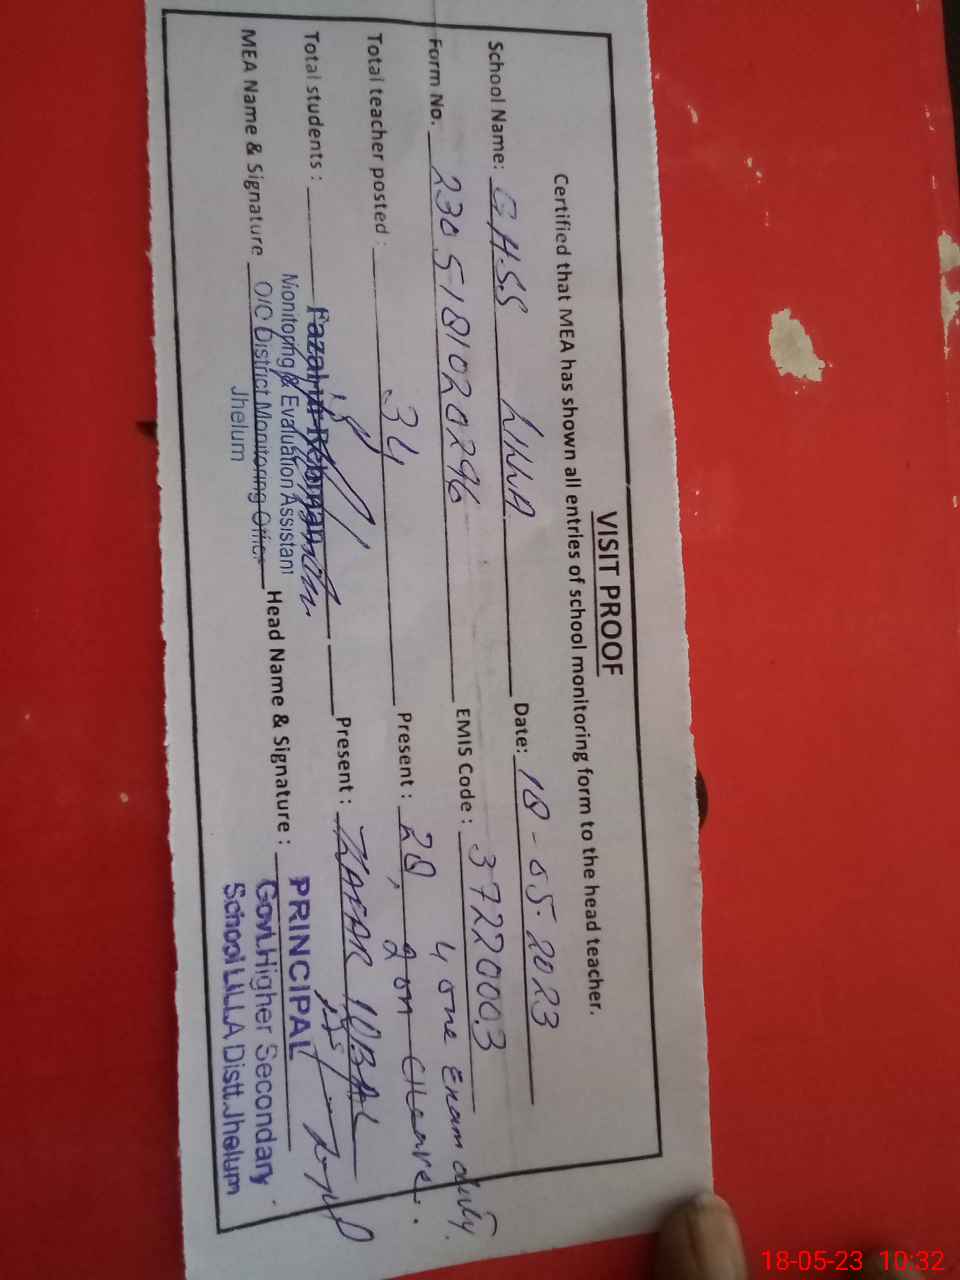 VISIT PROOF
Certified that MEA has shown all entries of school monitoring form to the head teacher.
School Name: G.H.S.S LILLA Date: 18-05-2023
Form No. 230518102 0296 EMIS Code: 37220003
4 one Exam duty.
Total teacher posted: 34 Present: 28, 2 on CLeave.
Total students: Present: ZAFAR IQBAL
Fazal ur Rehman
Monitoring & Evaluation Assistant
MEA Name & Signature O/C District Monitoring Officer Head Name & Signature: PRINCIPAL
Jhelum
Govt. Higher Secondary
School LILLA Distt. Jhelum
18-05-23 10:32